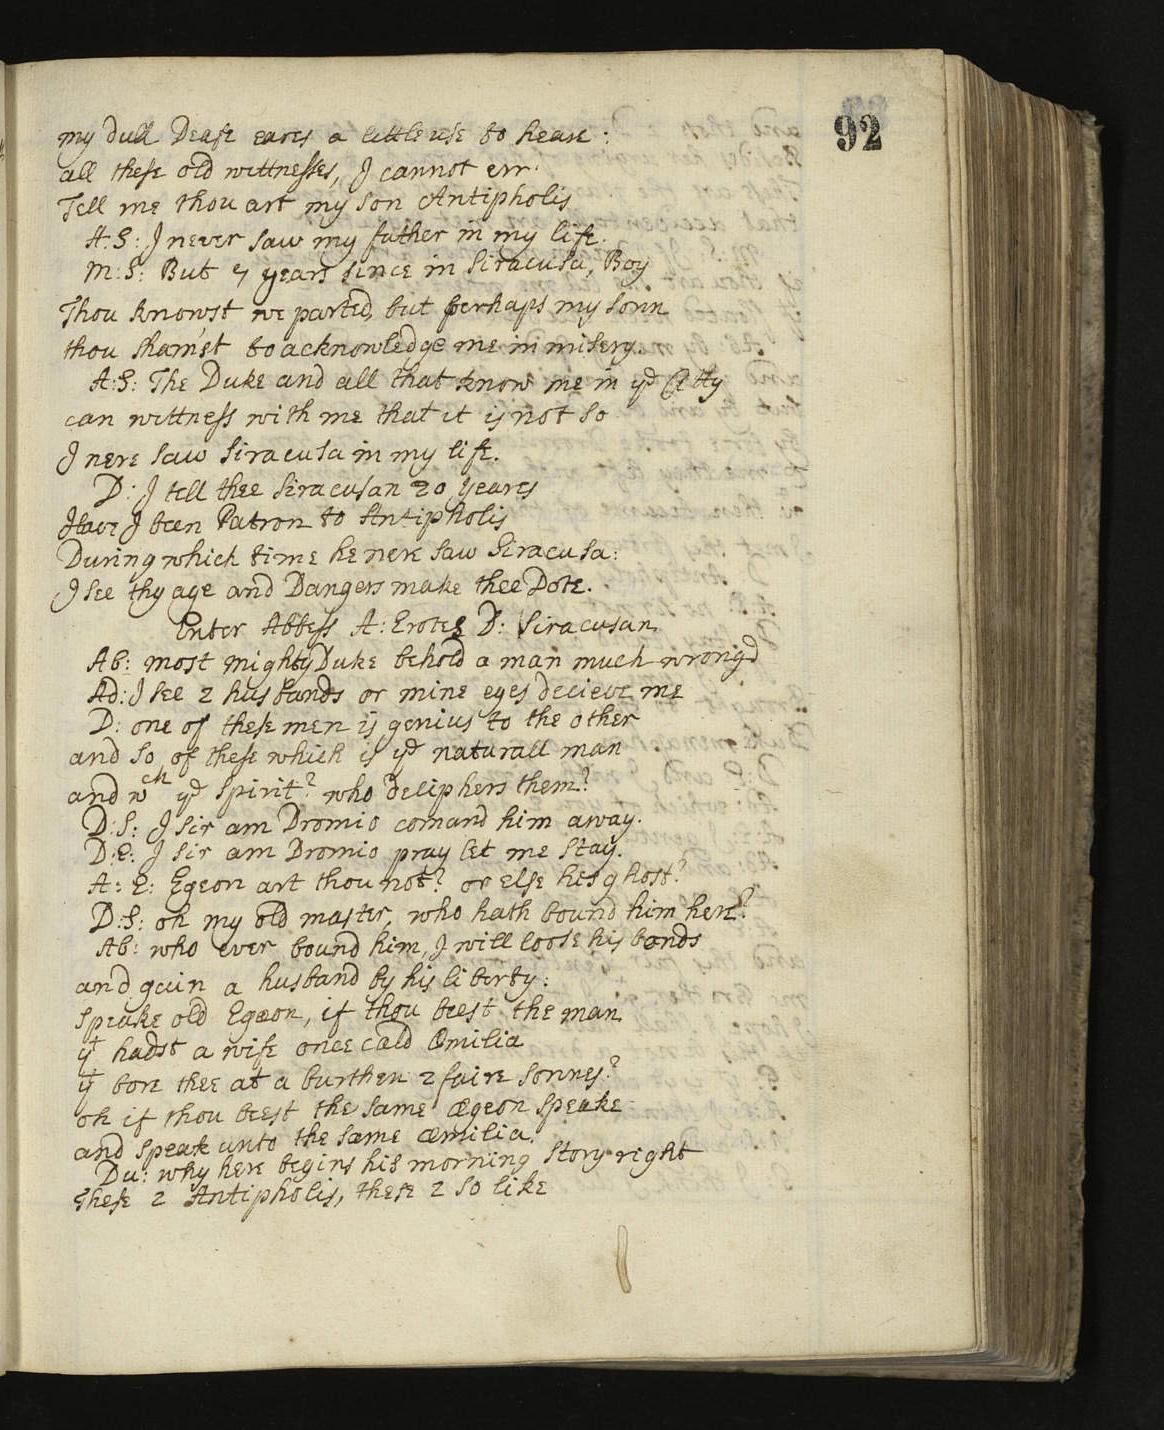 92
my dull Deafe eares a little use to heare:
all these old wittnesses, I cannot err.
Tell me thou art my son Antipholis
A:S: I never saw my father in my life.
M:S: But 7 years since in Siracusa, Boy
Thou knowst we parted, but perhaps my sonn
thou sham'st to acknowledge me in misery.
A:S: The Duke and all that know me in ye Citty
can wittness with me that it is not so
I nere saw Siracusa in my life.
D: I tell thee Siracusan 20 yeares
Have I been Patron to Antipholis
During which time he nere saw Siracusa:
I see thy age and Dangers make thee Dote.
Enter Abbess A: Erotes D: Siracusan
Ab: most mighty Duke behold a man much wrong'd
Ad: I see 2 husbands or mine eyes decieve me
D: one of these men is genius to the other
and so of these which is ye naturall man
and wch ye spirit? who deciphers them?
D:S: I Sir am Dromio comand him away.
D:E: I Sir am Dromio pray let me stay.
A: E: Egeon art thou not? or else his ghost?
D:S: oh my old master, who hath bound him here?
Ab: who ever bound him, I will loose his bonds
and gain a husband by his liberty:
speake old Egæon, if thou beest the man
yt hadst a wife once cald Œmilia
yt bore thee at a burthen 2 faire sonnes?
oh if thou beest the same ægeon speake
and speak unto the same æmilia.
Du: why here begins his morning story right
These 2 Antipholis, these 2 so like